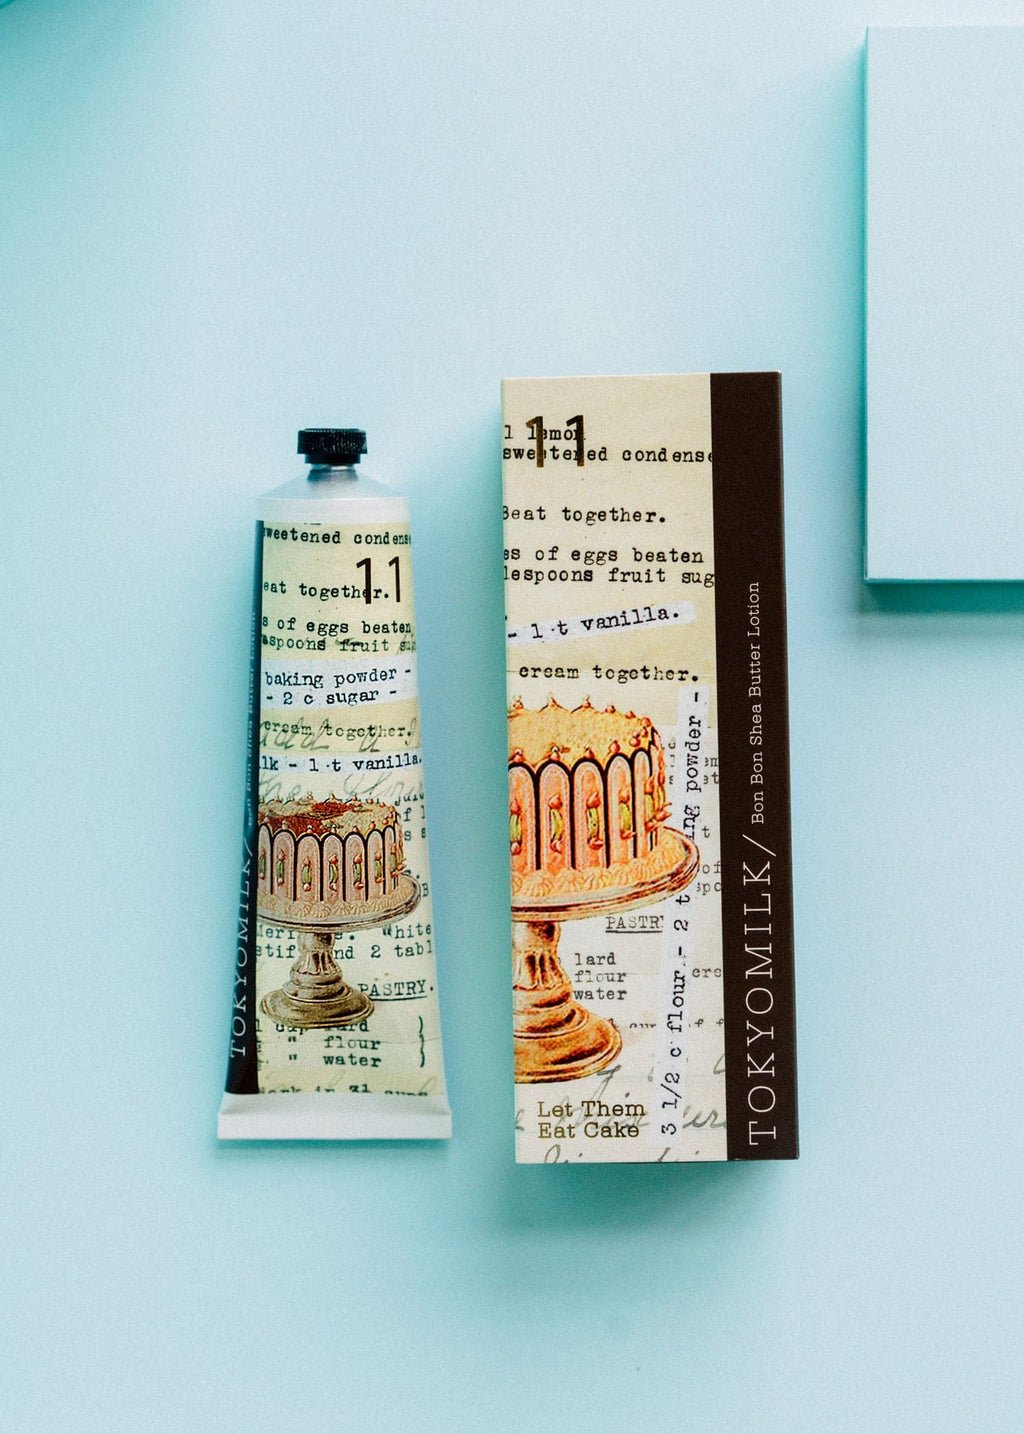 sweetened condens
11
eat together.
s of eggs beaten
spoons fruit
baking powder -
- 2 c sugar -
cream together.
lk - 1 t vanilla.
White
nd 2 tabl
PASTRY.
1 cup lard
" flour
" water
TOKYOMILK/ Bon Bon Shea Butter Lotion
11
1 lemon
sweetened condense
Beat together.
es of eggs beaten
lespoons fruit sug
- 1 t vanilla.
cream together.
PASTR
lard
flour
water
3 1/2 c flour - 2 t ing powder -
Let Them
Eat Cake
TOKYOMILK/ Bon Bon Shea Butter Lotion